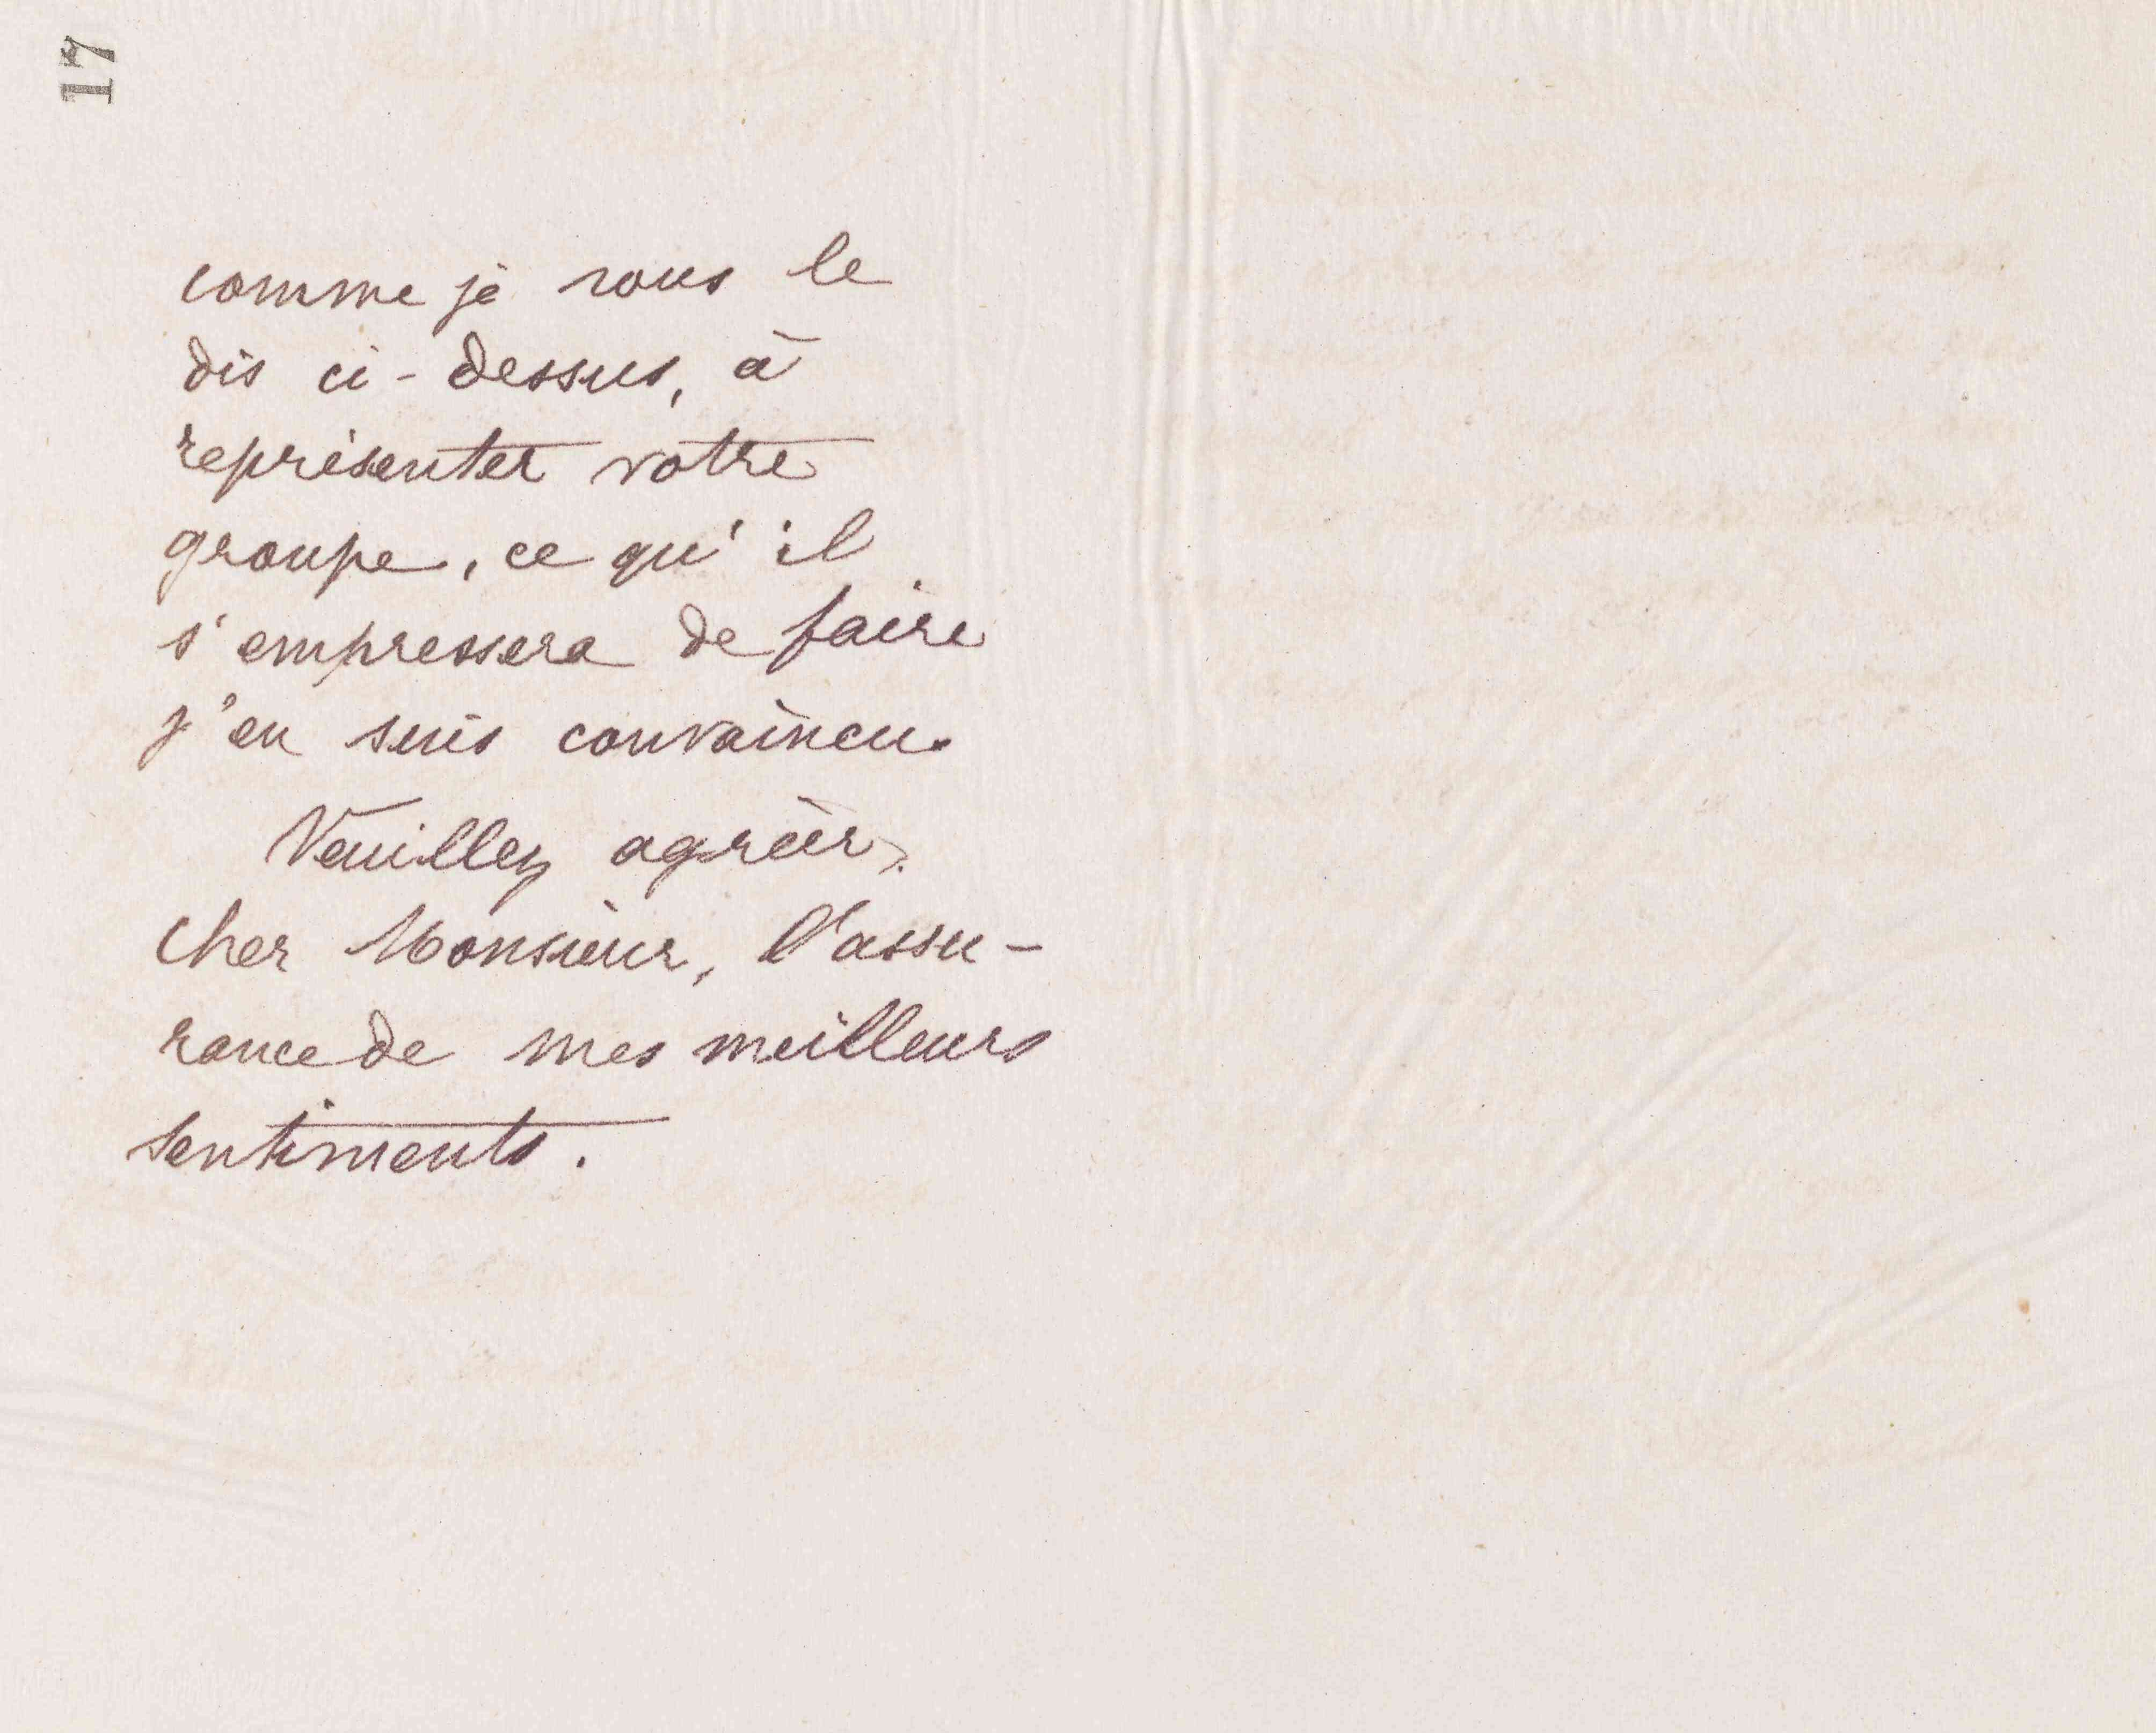 17
comme je vous le
dis ci-dessus, à
représenter votre
groupe, ce qu'il
s'empressera de faire
j'en suis convaincu.
Veuillez agréer,
cher Monsieur, l'assu-
rance de mes meilleurs
sentiments.